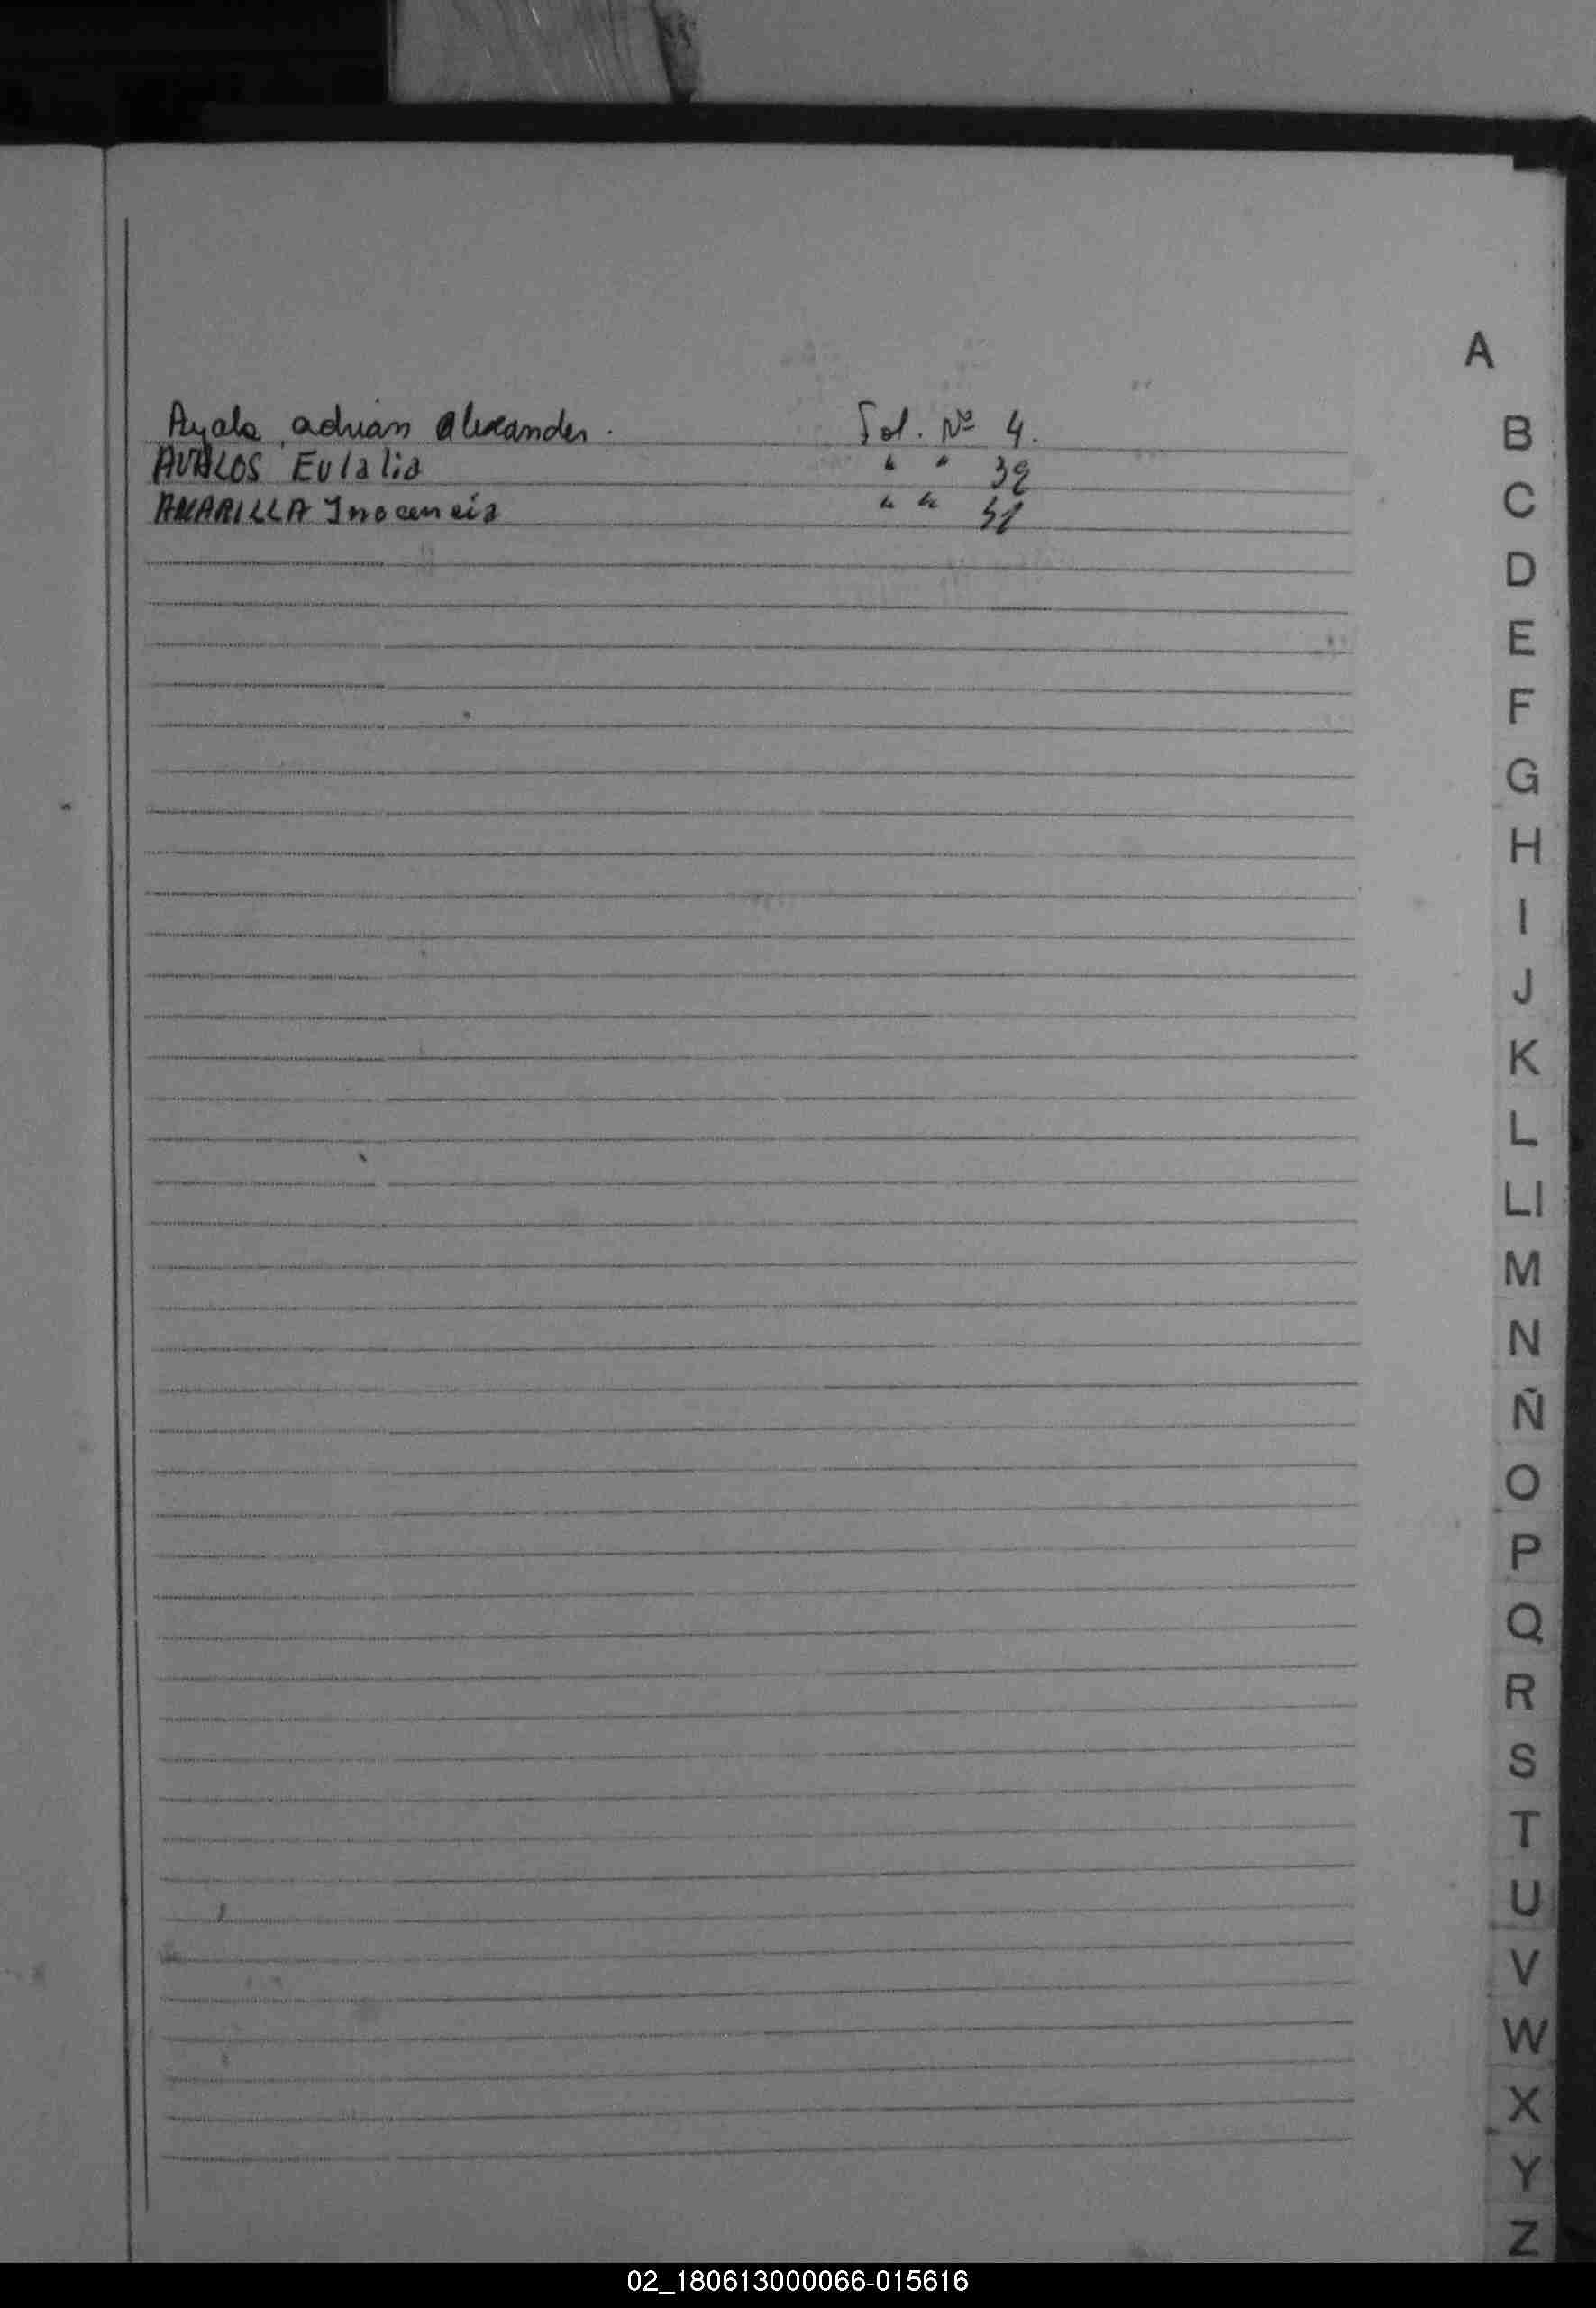 A
Ayala, adrian alexander. Fol. Nº 4.
AVALOS Eulalia " " 39
AMARILLA Inocencia " "
B
C
D
E
F
G
H
I
J
K
L
Ll
M
N
Ñ
O
P
Q
R
S
T
U
V
W
X
Y
Z
02_180613000066-015616